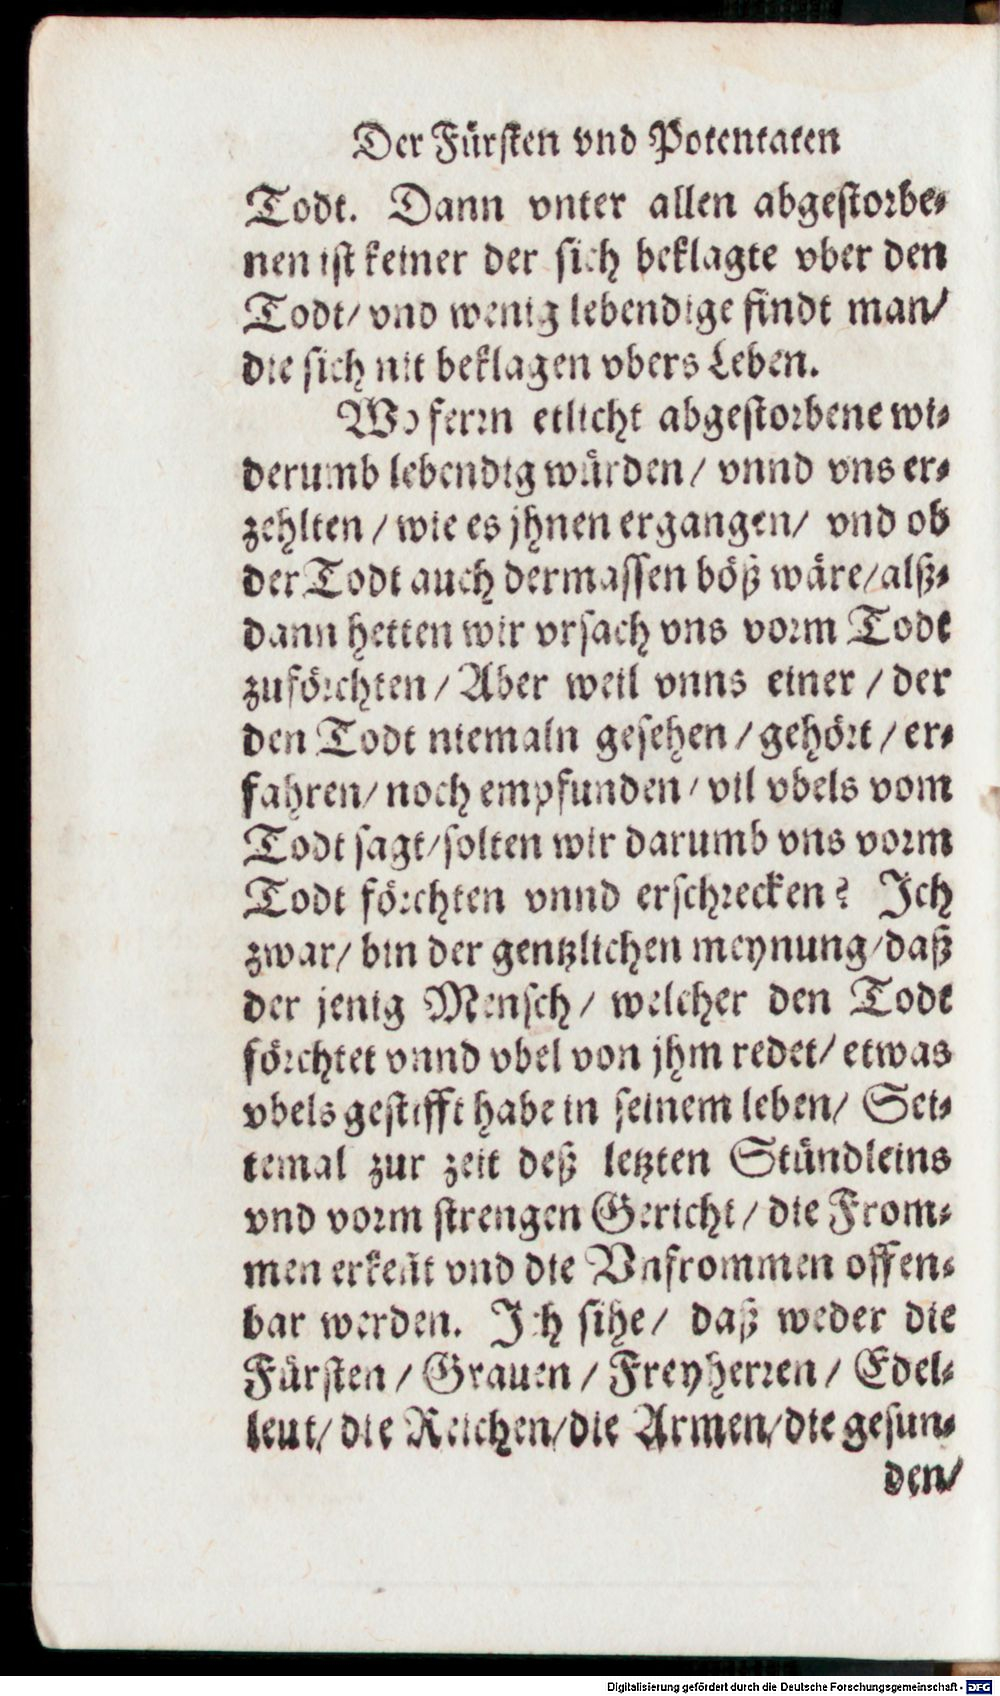 Der Fürsten vnd Potentaten
Todt. Dann vnter allen abgestorbe-
nen ist keiner der sich beklagte vber den
Todt/ vnd wenig lebendige findt man/
die sich nit beklagen vbers Leben.
Wo ferrn etlicht abgestorbene wi-
derumb lebendig würden/ vnnd vns er-
zehlten / wie es jhnen ergangen/ vnd ob
der Todt auch dermassen böß wäre/ alß-
dann hetten wir vrsach vns vorm Todt
zuförchten / Aber weil vnns einer / der
den Todt niemaln gesehen / gehört / er-
fahren/ noch empfunden/ vil vbels vom
Todt sagt/ solten wir darumb vns vorm
Todt förchten vnnd erschrecken? Ich
zwar/ bin der gentzlichen meynung/ daß
der jenig Mensch/ welcher den Todt
förchtet vnnd vbel von jhm redet/ etwas
vbels gestifft habe in seinem leben/ Sei-
temal zur zeit deß letzten Stündleins
vnd vorm strengen Gericht/ die From-
men erkeñt vnd die Vnfrommen offen-
bar werden. Ich sihe/ daß weder die
Fürsten / Grauen / Freyherren / Edel-
leut/ die Reichen/ die Armen/ die gesun-
den/
Digitalisierung gefördert durch die Deutsche Forschungsgemeinschaft - DFG